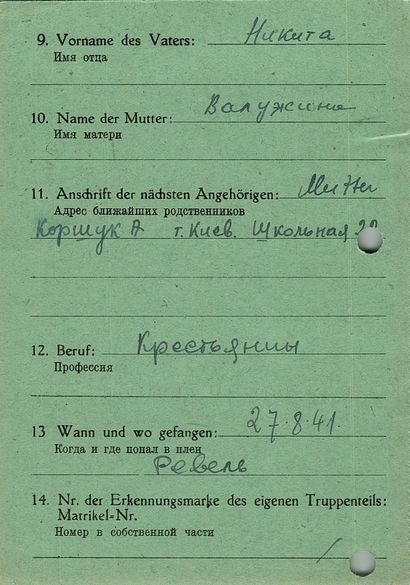 9. Vorname des Vaters: Никита
Имя отца
10. Name der Mutter: Валужини
Имя матери
11. Anschrift der nächsten Angehörigen: Mutter
Адрес ближайших родственников
Коршук А г. Киев. Школьная
12. Beruf: Крестьянин
Профессия
13 Wann und wo gefangen: 27.8.41.
Когда и где попал в плен
Ревель
14. Nr. der Erkennungsmarke des eigenen Truppenteils:
Matrikel-Nr.
Номер в собственной части
/